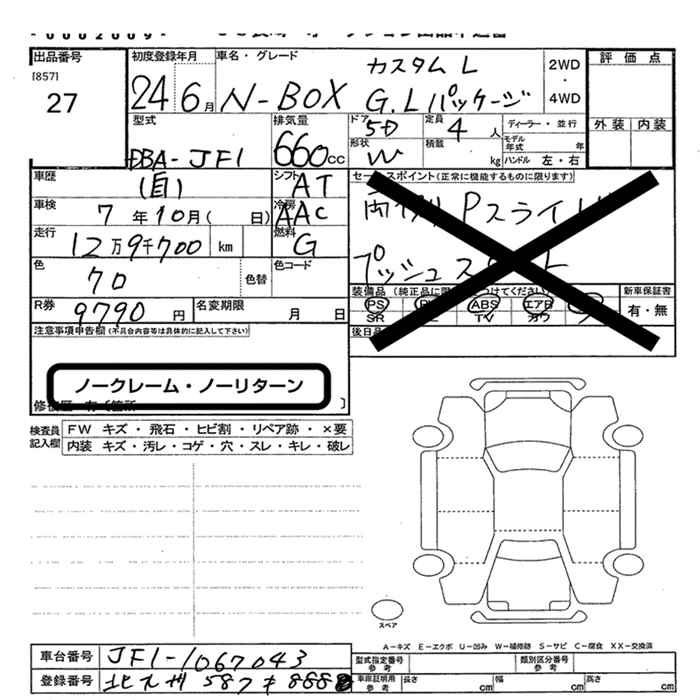 出品番号
[857]
27
初度登録年月
24 6月
車名・グレード
カスタム L
N-BOX G.Lパッケージ
2WD
・
4WD
評価点
外装 内装
型式
DBA-JF1
排気量
660cc
ドア
5D
定員
4人
形状
W
積載
kg
ディーラー・並行
モデル年式 年
ハンドル 左・右
車歴
(自)
シフト
AT
車検
7年10月( 日)
冷房
AAC
走行
12万9千700 km
燃料
G
色
70
色替
色コード
R券
9790円
名変期限
月 日
セールスポイント(正常に機能するものに限ります)
両側Pスライド
プッシュスタート
装備品
PS ABS エアB
SR TV カワ
新車保証書
有・無
注意事項申告欄(不具合内容等は具体的に記入して下さい)
ノークレーム・ノーリターン
検査員記入欄
FW キズ・飛石・ヒビ割・リペア跡・×要
内装 キズ・汚レ・コゲ・穴・スレ・キレ・破レ
スペア
A-キズ E-エクボ U-凹み W-補修跡 S-サビ C-腐食 XX-交換済
車台番号 JF1-1067043
登録番号 北九州 587 そ 888
型式指定番号 参考
類別区分番号 参考
車庫証明用 参考
長さ cm 幅 cm 高さ cm